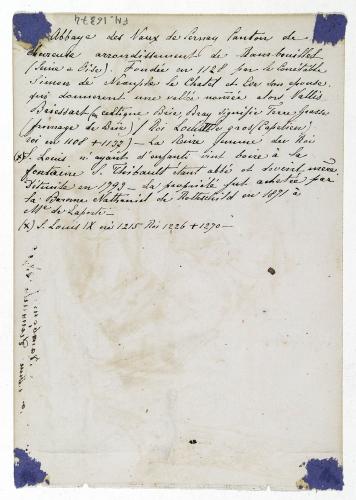 FM.16374
Abbaye des Vaux de Cernay Canton de
Chevreuse arrondissement de Rambouillet
(Seine et Oise). Fondée en 1128 par le Connétable
Simon de Neauphle le Chatel et Eve son épouse,
qui donnèrent une vallée nommée alors Vallis
Briessart (en celtique Brie Bray signifie Terre Grasse
(fromage de Brie) / Roi Louis le gros (Capétien)
roi en 1108 + 1137) — La Reine femme du Roi
(x) S. Louis n'ayant d'enfants vint boire à la
fontaine S. Thibault étant abbé et devint mère.
Détruite en 1792 — La propriété fut achetée par
la Baronne Nathaniel de Rothschild en 1871 à
Mr de Laporte
(x) S. Louis IX né 1215 Roi 1226 + 1270 —